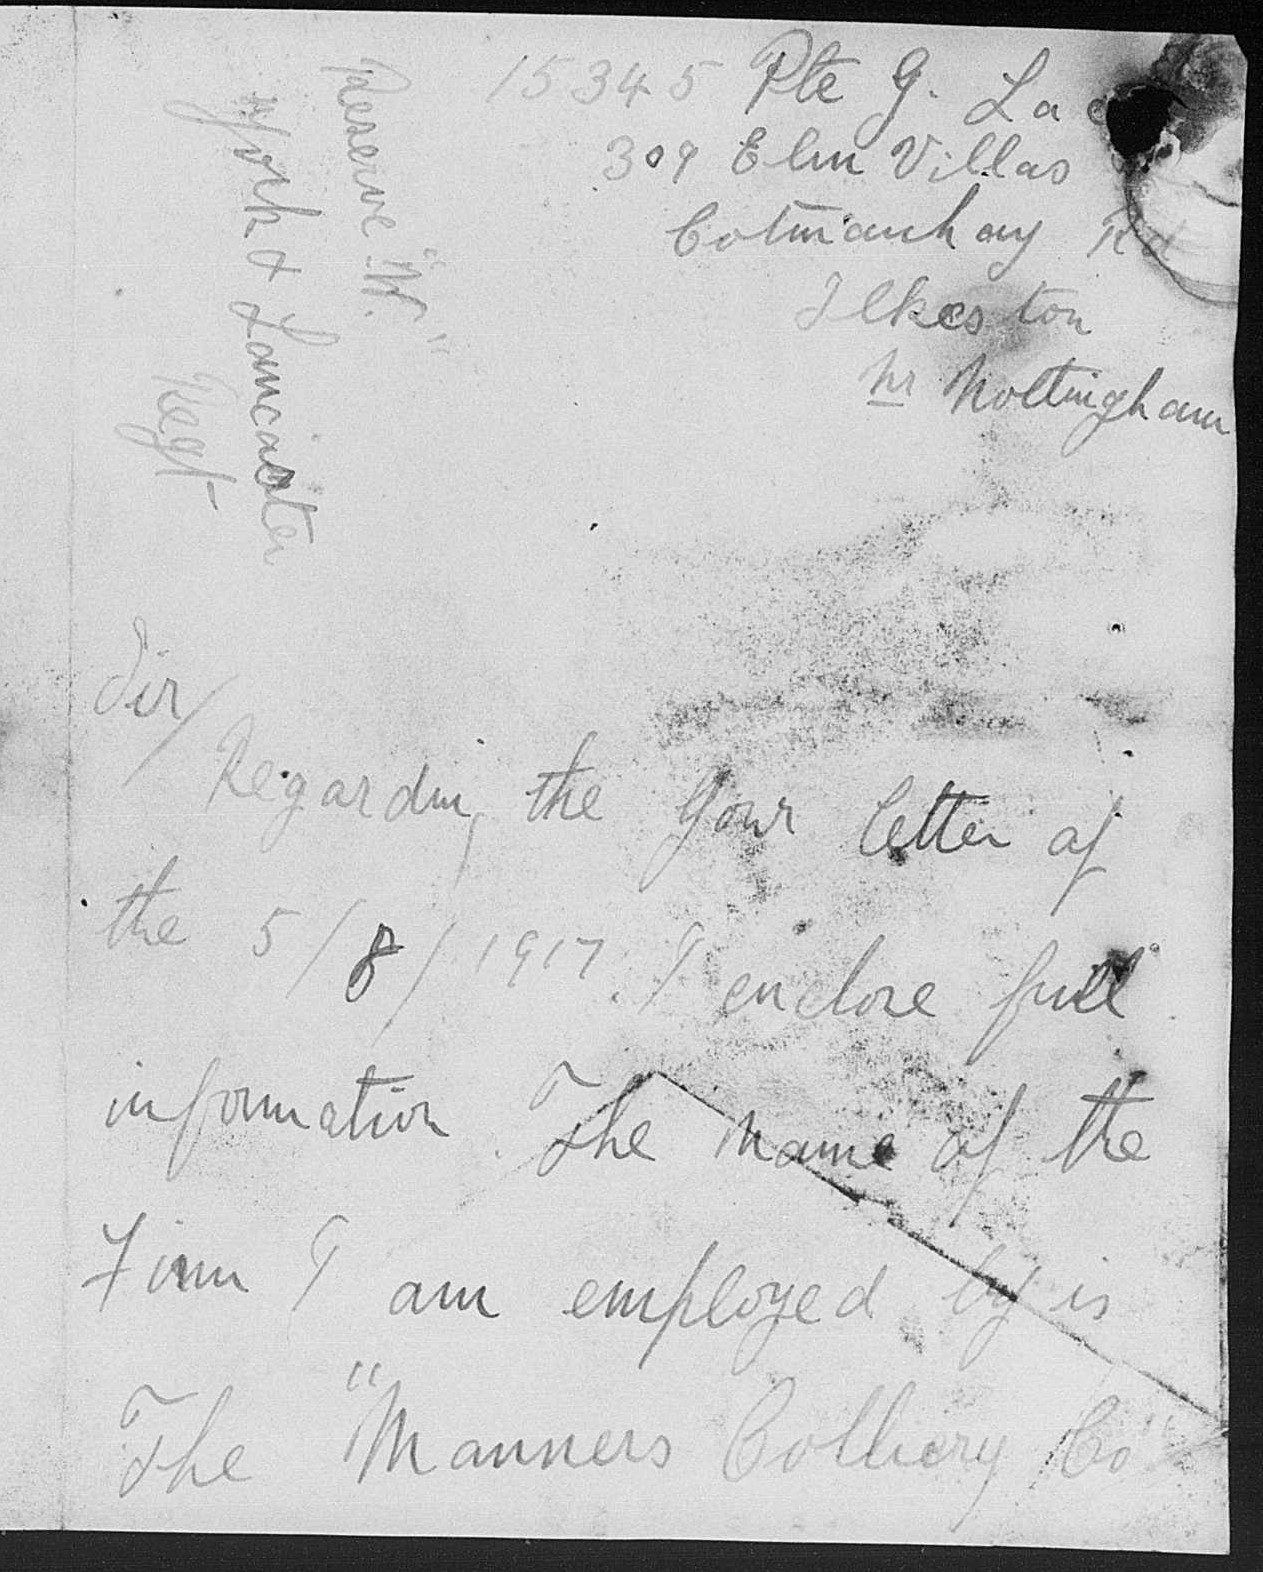 15345 Pte G. La
309 Elm Villas
Cotmanhay Rd
Ilkeston
Nr Nottingham
Reserve "W."
York & Lancaster
Regt
Sir/
Regarding the Your letter of
the 5/8/1917. I enclose full
information. The name of the
Firm I am employed by is
The "Manners Colliery Co"